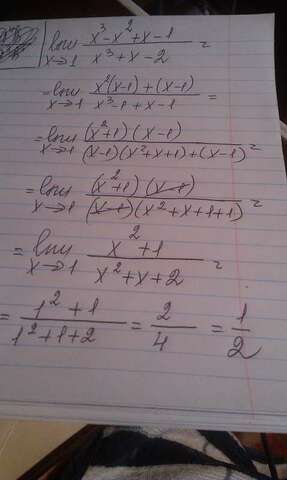 lim x→1 x³-x²+x-1 / x³+x-2 =
= lim x→1 x²(x-1)+(x-1) / x³-1+x-1 =
= lim x→1 (x²+1)(x-1) / (x-1)(x²+x+1)+(x-1) =
= lim x→1 (x²+1)(x-1) / (x-1)(x²+x+1+1) =
= lim x→1 x²+1 / x²+x+2 =
= 1²+1 / 1²+1+2 = 2/4 = 1/2